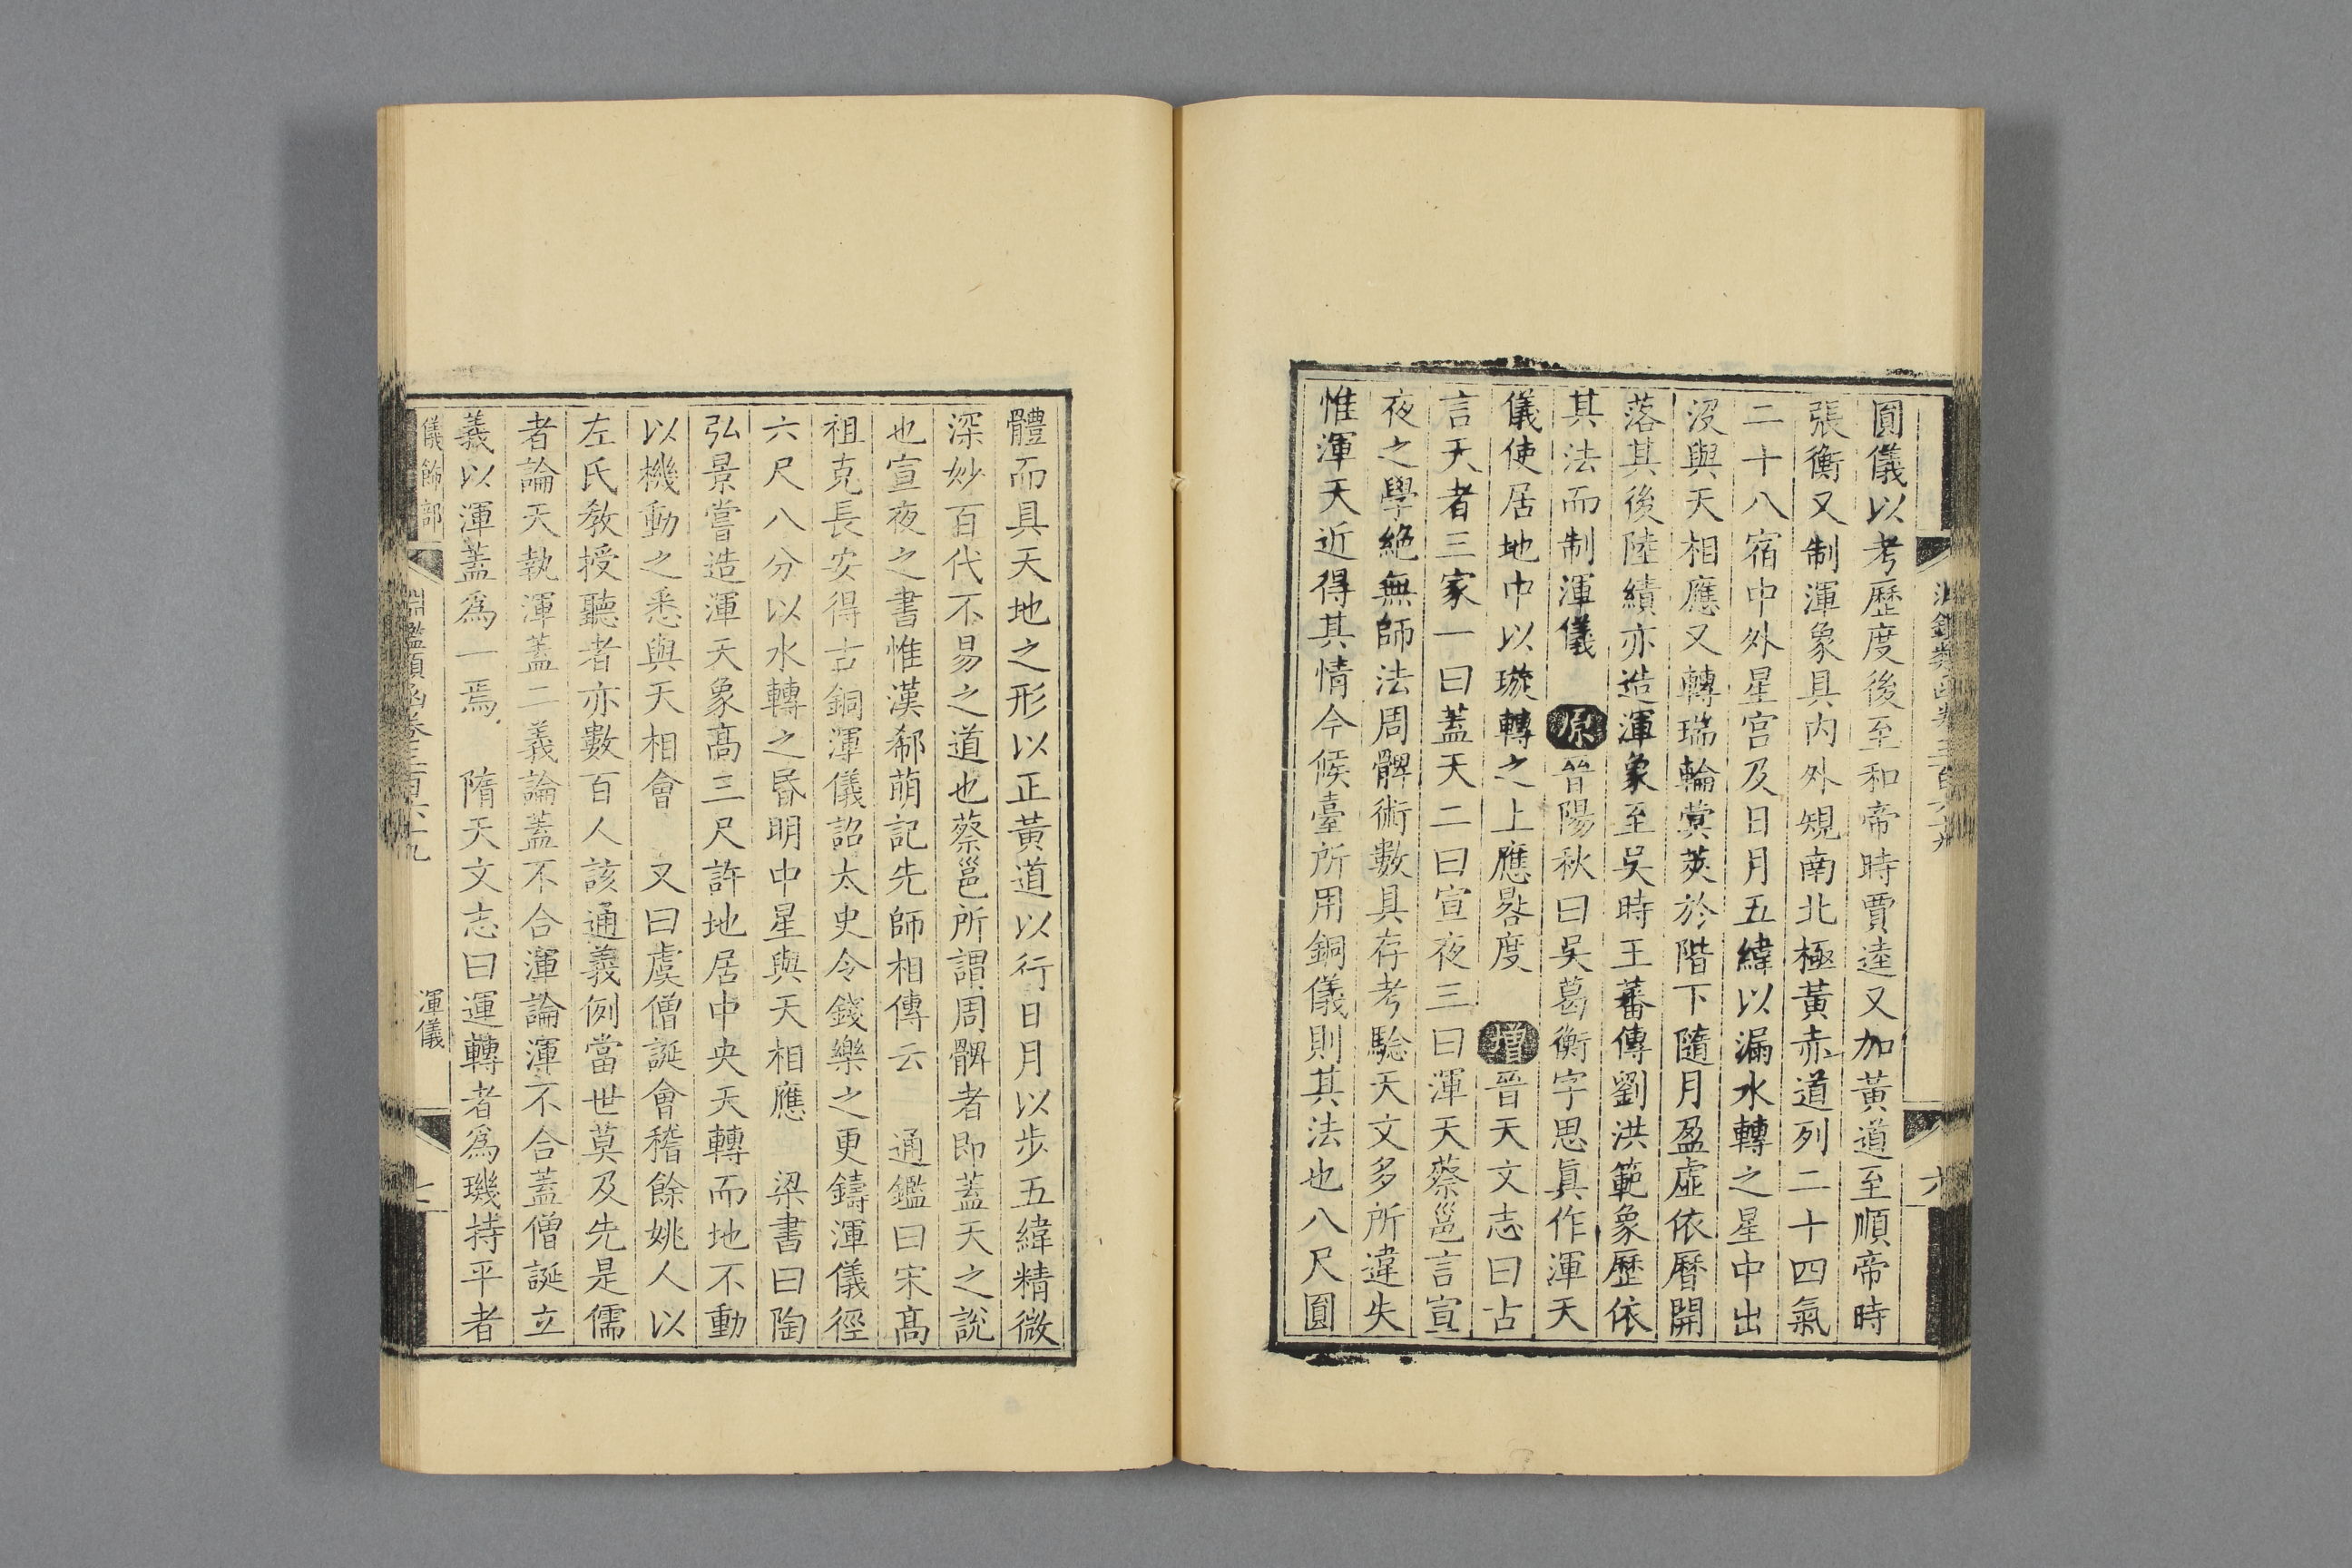 圓儀以考歷度後至和帝時賈逵又加黃道至順帝時
張衡又制渾象具内外規南北極黃赤道列二十四氣
二十八宿中外星宫及日月五緯以漏水轉之星中出
沒與天相應又轉瑞輪蓂莢於階下隨月盈虛依曆開
落其後陸績亦造渾象至吴時王蕃傳劉洪範象歷依
其法而制渾儀 原晉陽秋曰吴葛衡字思眞作渾天
儀使居地中以璇轉之上應晷度 增晉天文志曰古
言天者三家一曰蓋天二曰宣夜三曰渾天蔡邕言宣
夜之學絶無師法周髀術數具存考驗天文多所違失
惟渾天近得其情今候臺所用銅儀則其法也八尺圓
體而具天地之形以正黃道以行日月以步五緯精微
深妙百代不易之道也蔡邕所謂周髀者即蓋天之說
也宣夜之書惟漢郗萌記先師相傳云 通鑑曰宋髙
祖克長安得古銅渾儀詔太史令錢樂之更鑄渾儀徑
六尺八分以水轉之昬明中星與天相應 梁書曰陶
弘景嘗造渾天象髙三尺許地居中央天轉而地不動
以機動之悉與天相會 又曰虞僧誕會稽餘姚人以
左氏敎授聽者亦數百人該通義例當世莫及先是儒
者論天執渾蓋二義論蓋不合渾論渾不合蓋僧誕立
義以渾蓋爲一焉 隋天文志曰運轉者爲璣持平者
儀飾部 淵鑑類函卷三百六十九 渾儀 七